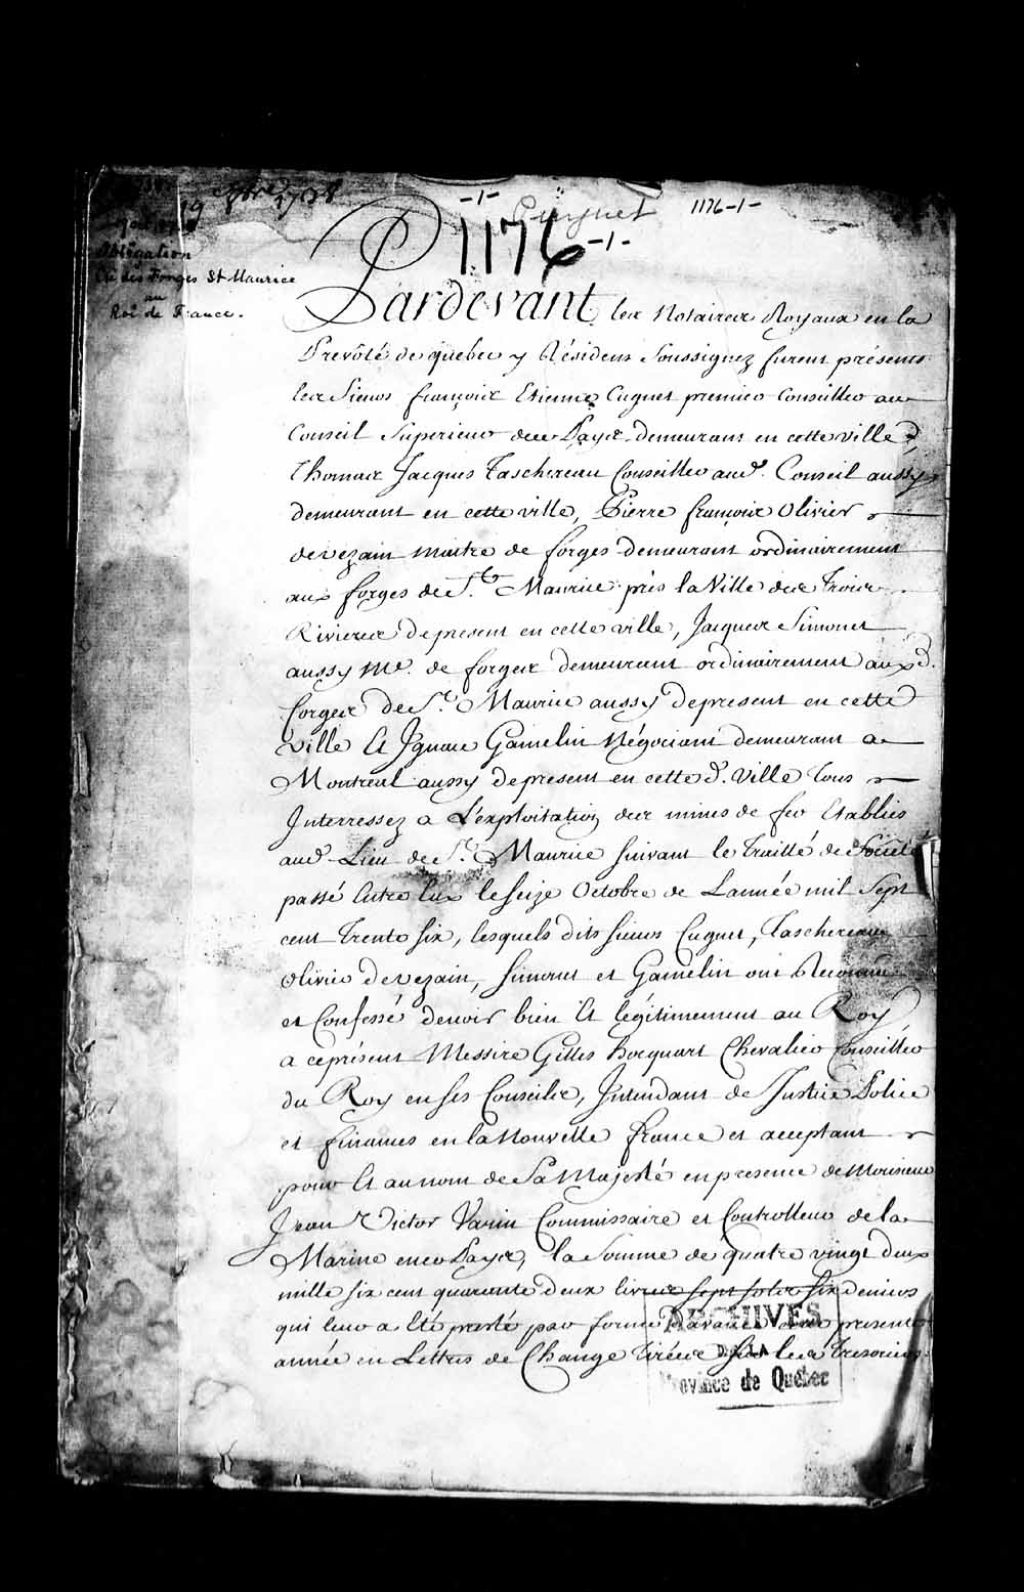 19 8bre 1738
-1-
Cugnet
1176-1-
1176-1-
Obligation
Cie des Forges St Maurice
au
Roi de France.
Pardevant les Notaires Royaux en la
Prevôté de quebec y Résidens Soussignez furent présents
les Sieurs françois Etienne Cugnet premier Conseiller au
Conseil Superieur de ce Païs demeurant en cette ville,
Thomas Jacques Taschereau Conseiller aud. Conseil aussy
demeurant en cette ville, Pierre françois Olivier
devezain maitre de forges demeurant ordinairement
aux forges de St. Maurice près la Ville des Trois
Rivieres de present en cette ville, Jacques Simonet
aussy Me. de forges demeurant ordinairement aux d.
forges de St. Maurice aussy de present en cette
ville Et Ignace Gamelin Négociant demeurant a
Montreal aussy de present en cette d. Ville tous
Interressez a L'exploitation des mines de fer Etablies
aud. Lieu de St. Maurice suivant le traitté de Société
passé Entre Eux le seize Octobre de Lannée mil sept
cent Trente six, lesquels dits sieurs Cugnet, Taschereau
Olivier devezain, Simonet et Gamelin ont Reconnu
et Confessé devoir bien Et légitimement au Roy
a ce présent Messire Gilles hocquart Chevalier Conseiller
du Roy en ses Conseils, Intendant de Justice Police
et finances en la Nouvelle france et acceptant
pour Et au nom de Sa Majesté en presence de Monsieur
Jean Victor Varin Commissaire et Controlleur de la
Marine en ce Païs, la Somme de quatre vingt deux
mille six cent quarante deux livres sept sols six deniers
qui leur a Eté presté par forme d'avance presente
année en Lettres de Change Tirées sur les Tresoriers
ARCHIVES
DE LA
Province de Québec